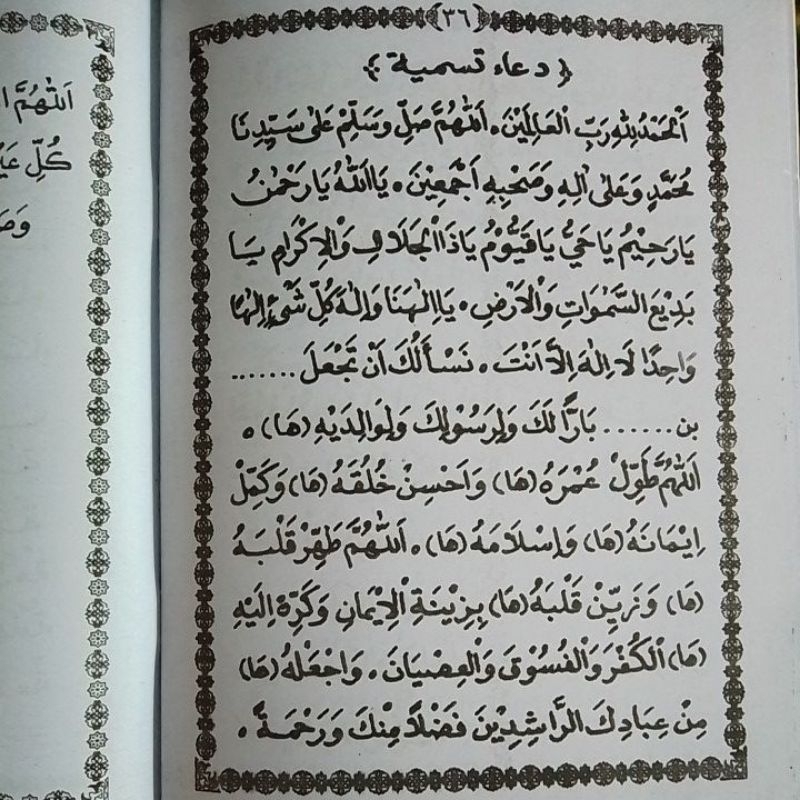 (٣٦)
﴿ دعاء تسمية ﴾
اَلْحَمْدُ لِلّٰهِ رَبِّ الْعَالَمِيْنَ. اَللّٰهُمَّ صَلِّ وَسَلِّمْ عَلٰى سَيِّدِنَا
مُحَمَّدٍ وَعَلٰى اٰلِهِ وَصَحْبِهِ اَجْمَعِيْنَ. يَا اَللّٰهُ يَا رَحْمٰنُ
يَا رَحِيْمُ يَا حَيُّ يَا قَيُّوْمُ يَا ذَا الْجَلَالِ وَالْاِكْرَامِ يَا
بَدِيْعَ السَّمٰوَاتِ وَالْاَرْضِ. يَا اِلٰهَنَا وَاِلٰهَ كُلِّ شَيْءٍ اِلٰهًا
وَاحِدًا لَا اِلٰهَ اِلَّا اَنْتَ. نَسْأَلُكَ اَنْ تَجْعَلَ .......
بن ...... بَارًّا لَكَ وَلِرَسُوْلِكَ وَلِوَالِدَيْهِ (هَا).
اَللّٰهُمَّ طَوِّلْ عُمْرَهُ (هَا) وَاَحْسِنْ خُلُقَهُ (هَا) وَكَمِّلْ
اِيْمَانَهُ (هَا) وَاِسْلَامَهُ (هَا). اَللّٰهُمَّ طَهِّرْ قَلْبَهُ
(هَا) وَزَيِّنْ قَلْبَهُ (هَا) بِزِيْنَةِ الْاِيْمَانِ وَكَرِّهْ اِلَيْهِ
(هَا) الْكُفْرَ وَالْفُسُوْقَ وَالْعِصْيَانَ. وَاجْعَلْهُ (هَا)
مِنْ عِبَادِكَ الرَّاشِدِيْنَ فَضْلًا مِنْكَ وَرَحْمَةً.
اَللّٰهُمَّ
كُلِّ